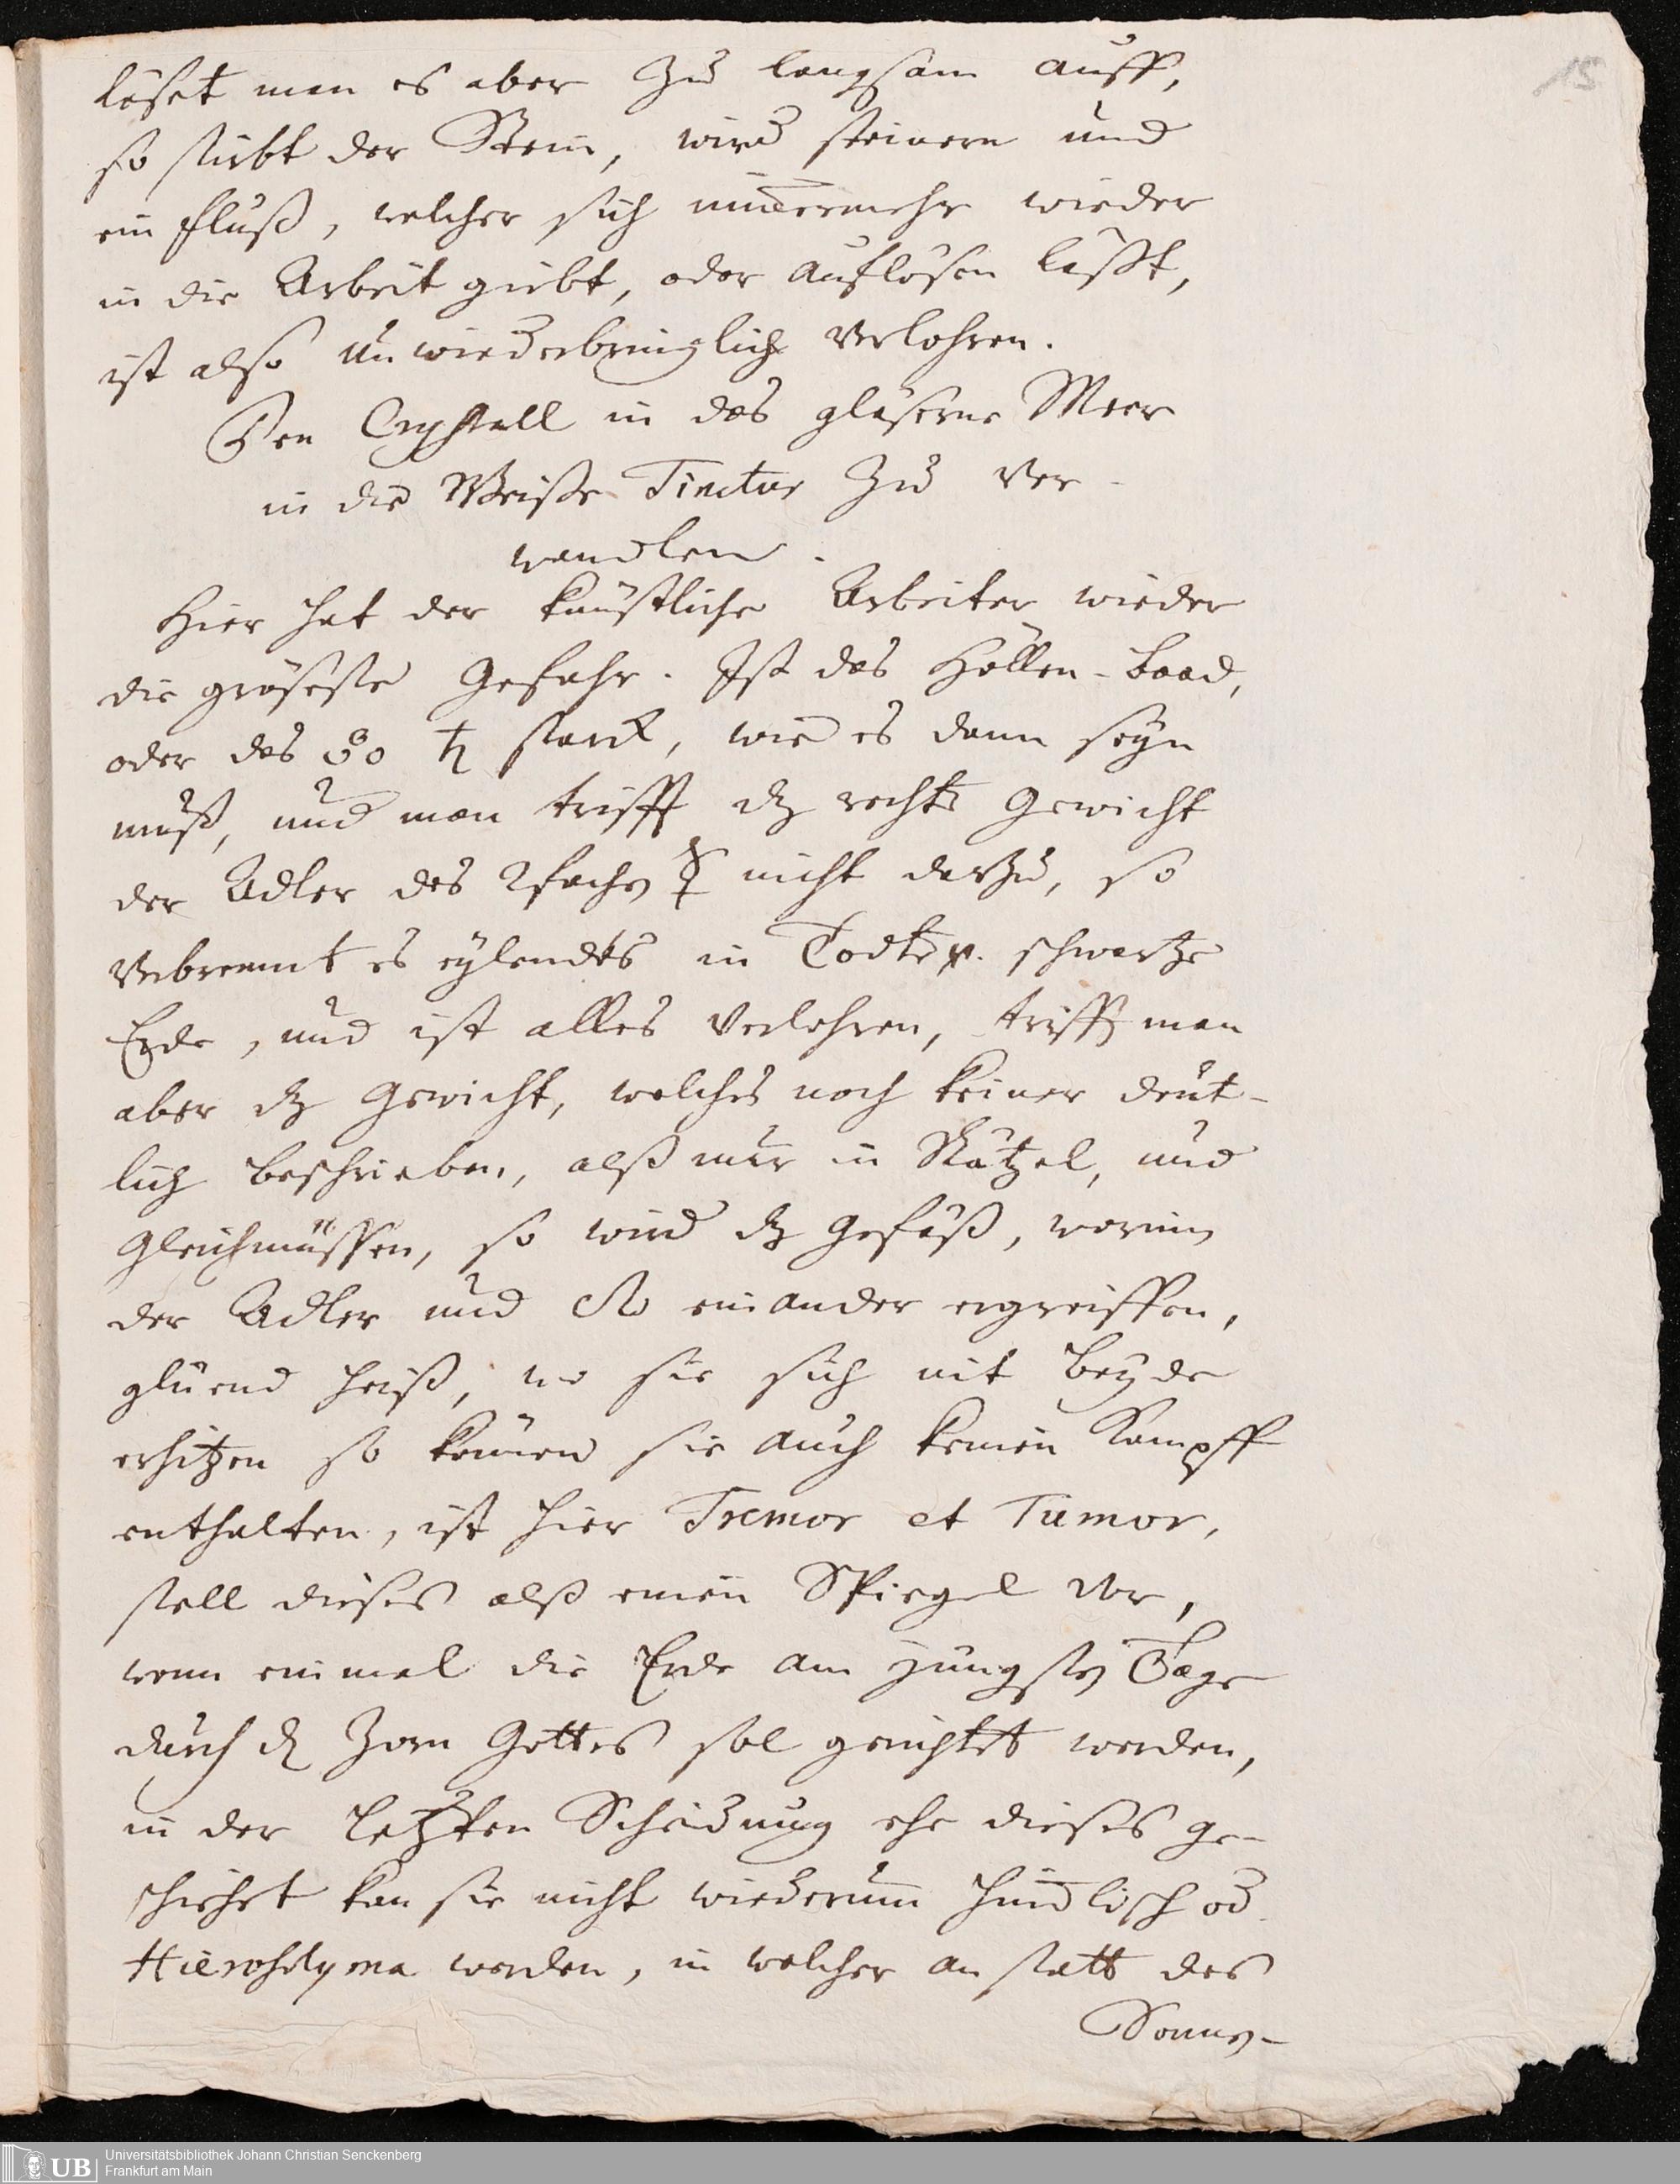 15
löset man es aber zu langsam auff,
so stirbt der Stein, wird steinern und
ein fluß, welcher sich nim̅ermehr wieder
in die Arbeit giebt, oder auflösen läßt,
ist also unwiederbringlich verlohren.
Den Crystall in das gläserne Meer
in die Weiße Tinctur zu ver-
wandlen.
Hier hat der künstliche Arbeiter wieder
die gröseste Gefahr. Ist das Höllen-Baad,
oder das ♄ starck, wie es dann seyn
muß, und man trifft dz rechte Gewicht
der Adler des 2fachen ☿ nicht darzu, so
verbrennt es eylendts in Todte schwartze
Erde, und ist alles verlohren, trifft man
aber dz Gewicht, welches noch keiner deut-
lich beschrieben, alß nur in Rätzel, und
Gleichnüssen, so wird dz Gefäß, worinn
der Adler und einander ergreiffen,
glüend heiß, wo sie sich nit beyde
erhitzen so können sie auch keinen Kampff
enthalten, ist hier Tremor et Tumor,
stell dieses alß einen Spiegel vor,
wenn einmal die Erde am jüngsten Tage
durch d Zorn Gottes sol gerichtet werden,
in der letzten Scheidung ehe dieses ge-
schiehet kan sie nicht wiederum̅ him̅lisch od
Hierosolyma werden, in welcher an statt des
Sonnen-
UB
Universitätsbibliothek Johann Christian Senckenberg
Frankfurt am Main